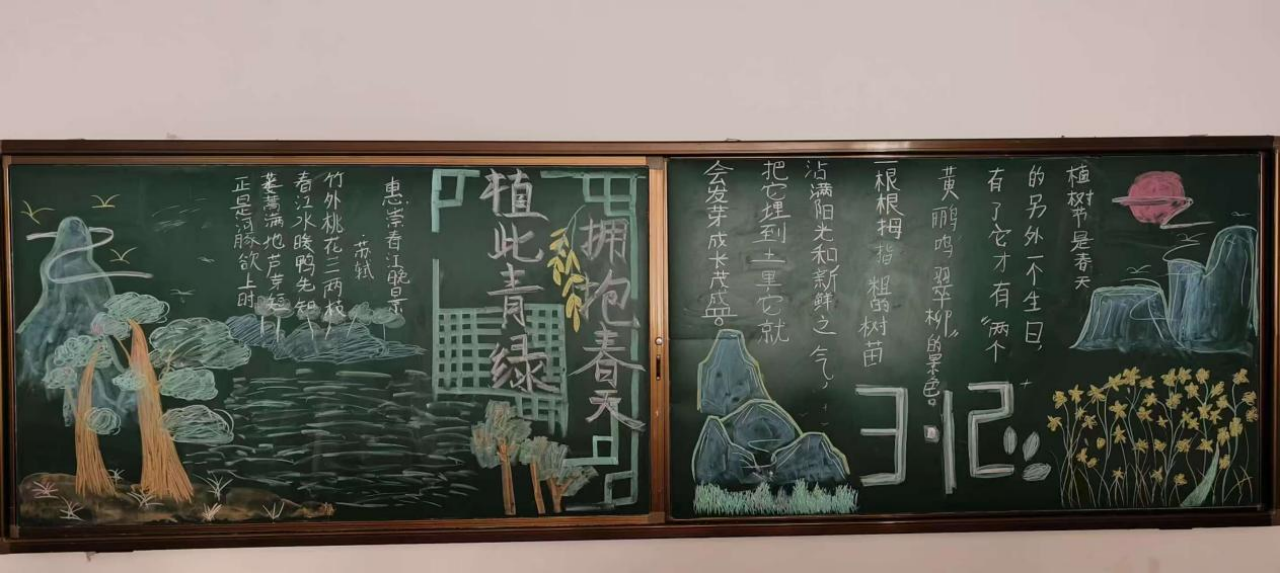 拥抱春天
植此青绿
惠崇春江晚景
苏轼
竹外桃花三两枝
春江水暖鸭先知
蒌蒿满地芦芽短
正是河豚欲上时
植树节是春天
的另外一个生日,
有了它才有“两个
黄鹂鸣翠柳”的景色。
一根根拇指粗的树苗
沾满阳光和新鲜之气,
把它埋到土里它就
会发芽成长茂盛。
3·12